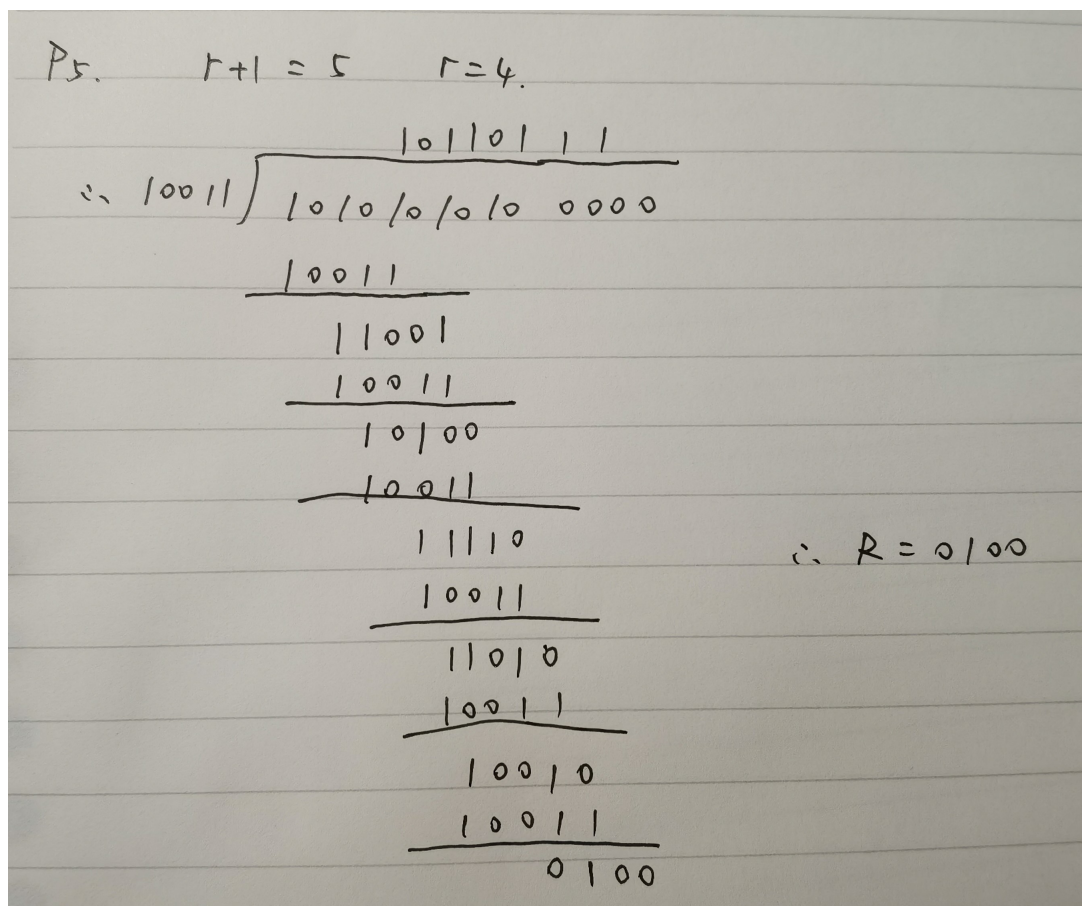 P5. r+1 = 5 r=4.
10110111
∴ 10011 ) 1010101010 0000
10011
11001
10011
10100
10011
11110
∴ R = 0100
10011
11010
10011
10010
10011
0100